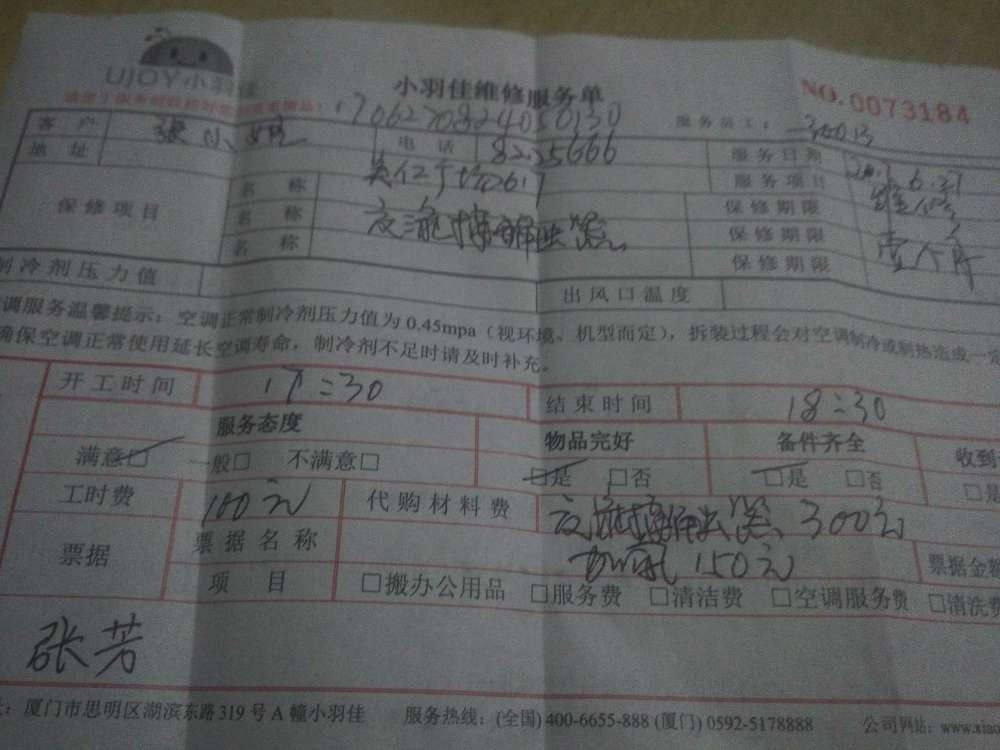 UJOY小羽佳
小羽佳维修服务单
NO.0073184
1706270824050130
服务员工:
客户 张小姐 电话 8225666 服务日期
地址 服务项目
保修项目 名称 保修期限
名称 保修期限 壹个月
名称 保修期限
制冷剂压力值 出风口温度
调服务温馨提示:空调正常制冷剂压力值为0.45mpa(视环境、机型而定),拆装过程会对空调制冷或制热造成一定
确保空调正常使用延长空调寿命,制冷剂不足时请及时补充。
开工时间 17:30 结束时间 18:30
服务态度 物品完好 备件齐全 收到
满意□ 一般□ 不满意□ □是 □否 □是 □否 □是
工时费 100元 代购材料费 300元
加氟 150元
票据 票据名称 票据金额
项目 □搬办公用品 □服务费 □清洁费 □空调服务费 □清洗费
张芳
厦门市思明区湖滨东路319号A幢小羽佳 服务热线:(全国)400-6655-888(厦门)0592-5178888 公司网站:www.xiao